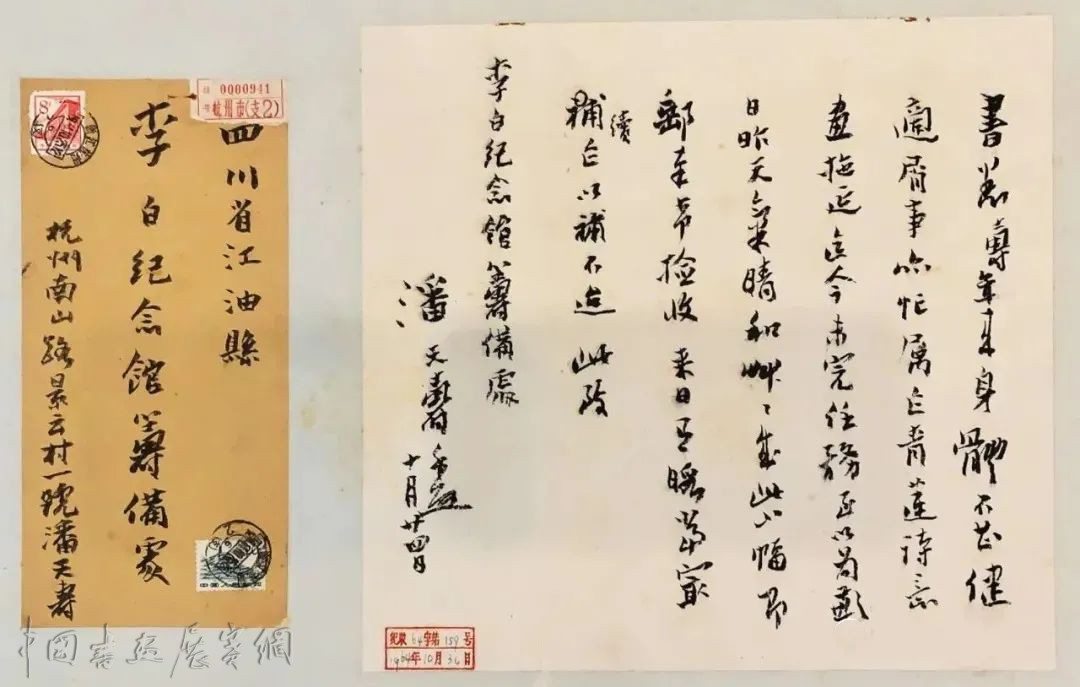 四川省江油縣
李白紀念館籌備處
杭州南山路景云村一號潘天壽
0000941
杭州市(支2)
8
書悉壽年来身體不甚健
適屑事亦忙属作青蓮詩意
畫拖延迄今未完任務至以為歉
日昨天氣晴和草〻成此小幅即
郵奉希撿收来日有暇當
續補作以補不逮 此致
李白紀念館籌備處
潘天壽手啟
十月廿四日
64字第159号
1964年10月30日
中國書画展賽網